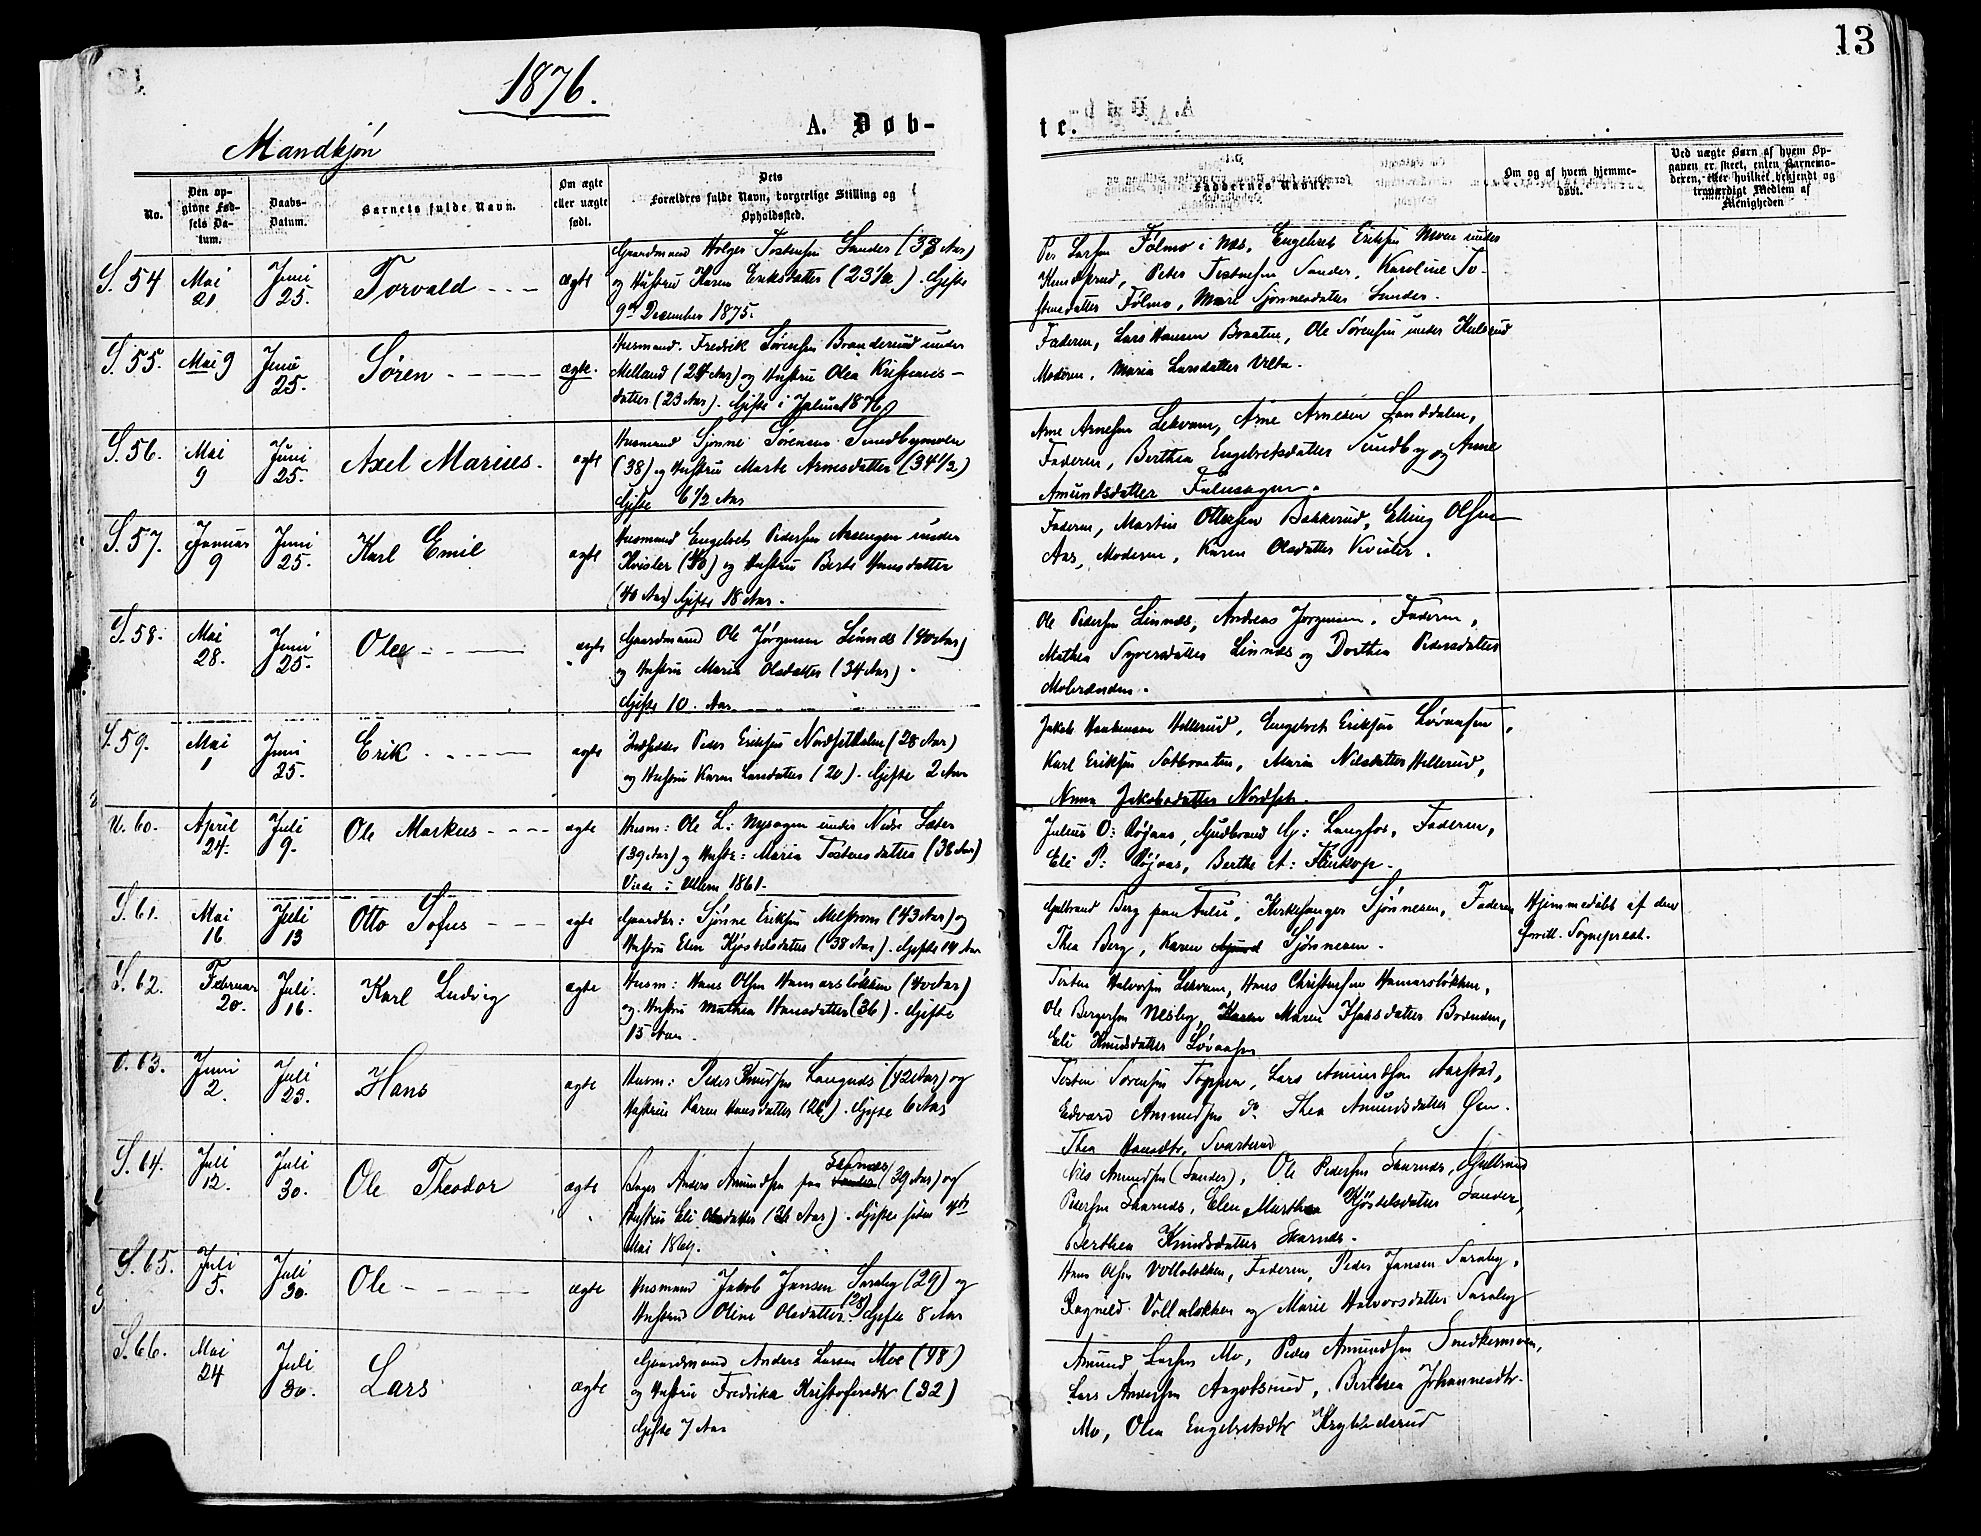 13
1876.
A. Døb-
te.
Mandkjön
No.
Den op-
givne Fød-
sels Da-
tum.
Daabs-
Datum.
Barnets fulde Navn.
Om ægte
eller uægte
født.
Dets
Forældres fulde Navn, borgerlige Stilling og
Opholdssted.
Faddernes Navne.
Om og af hvem hjemme-
døbt.
Ved uægte Børn af hvem Op-
gaven er skeet, enten Barnemo-
deren, eller hvilket bekjendt og
troværdigt Medlem af
Menigheden
S. 54 Mai 21 Juni 25. Torvald ægte
Gaardmand Holger Tostensen Sander (38 Aar)
og Hustru Karen Eriksdatter (23 1/2). Gifte
9de December 1875.
Per Larsen Følmo i Næs, Engebret Eriksen Moen under
Peder Tostensen Sander, Karoline To-
stensdatter Følmo, Mari Sjønnesdatter Sander.
S. 55. Mai 9 Juni 25. Sören ægte.
Husmand. Fredrik Sörensen Branderud under
Melland (24 Aar) og Hustru Olea Kristians-
datter (23 Aar). Gifte i Januar 1876
Faderen, Lars Hansen Braaten, Ole Sörensen under Hulsrud
Moderen, Maria Larsdatter Ulba.
S. 56. Mai 9 Juni 25. Axel Marius. ægte
Husmand Sjønne Sörensen Sundbymoen
(38) og Hustru Marte Arnesdatter (34 1/2)
Gifte 6 1/2 Aar
Arne Arnesen Lekvam, Arne Arnesen Landdalen,
Faderen, Berthea Engebretsdatter Sundby og Anne
Amundsdatter
S. 57. Januar 9 Juni 25. Karl Emil ægte
Husmand Engebret Pedersen Aasengen under
Kvisler (40) og Hustru Berte Hansdatter
(40 Aar) Gifte 18 Aar.
Faderen, Martin Ottersen Bakkerud, Elling Olsen
Aas, Moderen, Karen Olsdatter Kvisler.
S. 58. Mai 28. Juni 25. Ole ægte
Gaardmand Ole Jörgensen Linnæs (40 Aar)
og Hustru Maria Olsdatter (34 Aar).
Gifte 10. Aar
Ole Pedersen Linnæs, Andreas Jörgensen, Faderen,
Mathea Syversdatter Linnæs og Dorthea Pedersdatter
Mobrænden.
S. 59. Mai 1 Juni 25. Erik ægte
Inderst Peder Eriksen Nordsetdalen (28 Aar)
og Hustru Karen Larsdatter (20). Gifte 2 Aar
Jakob Haakensen Hellerud, Engebret Eriksen Lövaasen,
Karl Eriksen Sætbraaten, Maria Nilsdatter Hellerud,
Anna Jakobsdatter Nordset.
U. 60. April 24. Juli 9. Ole Markus ægte
Husm: Ole L: Nysagen under Nedre Sæter
(39 Aar) og Hustr: Maria Tostensdatter (38 Aar)
Viede i Ullern 1861.
Julius O: Röjaas, Gudbrand G: Langfos, Faderen,
Eli P: Röjaas, Berthe A:
S. 61. Mai 16 Juli 13 Otto Sofus ægte
Gaardbr: Sjønne Eriksen Melstrøm (43 Aar) og
Hustru Elen Kjöstelsdatter (38 Aar). Gifte 14 Aar
Gulbrand Berg paa Kirkesanger Sjønnesen, Faderen
Thea Berg, Karen Sjönnesen.
Hjemmedöbt af den
Sognepræst.
S. 62. Februar 20. Juli. 16. Karl Ludvig ægte
Husm: Hans Olsen Hamarslökken (40 Aar)
og Hustru Mathea Hansdatter (36). Gifte
15 Aar.
Tosten Halvorsen Lekvam, Hans Christensen Hamarslökken,
Ole Bergersen Nesby, Karen Maren Isaksdatter Brænden,
Eli Knudsdatter Lövaasen
O. 63. Juni 2. Juli 23. Hans ægte
Husm: Peder Knudsen Langnæs (42 Aar) og
Hustru Karen Hansdatter (26). Gifte 6 Aar
Tosten Sörensen Toppen, Lars Amundsen Aarstad,
Edvard Amundsen do. Thea Amundsdatter Øen.
Thea Hansdtr. Svarterud
S. 64. Juli 12. Juli 30. Ole Theodor ægte
Anders Amundsen paa Skarnæs Sander (39 Aar) og
Hustru Eli Olsdatter (26 Aar). Gifte siden 4de
Mai 1869.
Nils Amundsen (Sander), Ole Pedersen Skarnæs, Gulbrand
Pedersen Skarnæs, Elen Marthea Kjöstelsdatter Sander,
Berthea Knudsdatter Skarnæs.
S. 65. Juli 5. Juli 30. Ole ægte
Husmand Jakob Jansen Saraby (29) og
Hustru Oline Olsdatter (28) Gifte 8 Aar
Hans Olsen Vollalokken, Faderen, Peder Jansen Saraby,
Ragnild Vollalokken og Marie Halvorsdatter Saraby
S. 66. Mai 24 Juli 30. Lars ægte
Gaardmand Anders Larsen Moe (48)
og Hustru Fredrika Kristoffersdtr (32)
Gifte 7 Aar
Amund Larsen Mo, Peder Amundsen Snedkermoen,
Lars Andersen Berthea Johannesdtr.
Mo, Olea Engebretsdtr